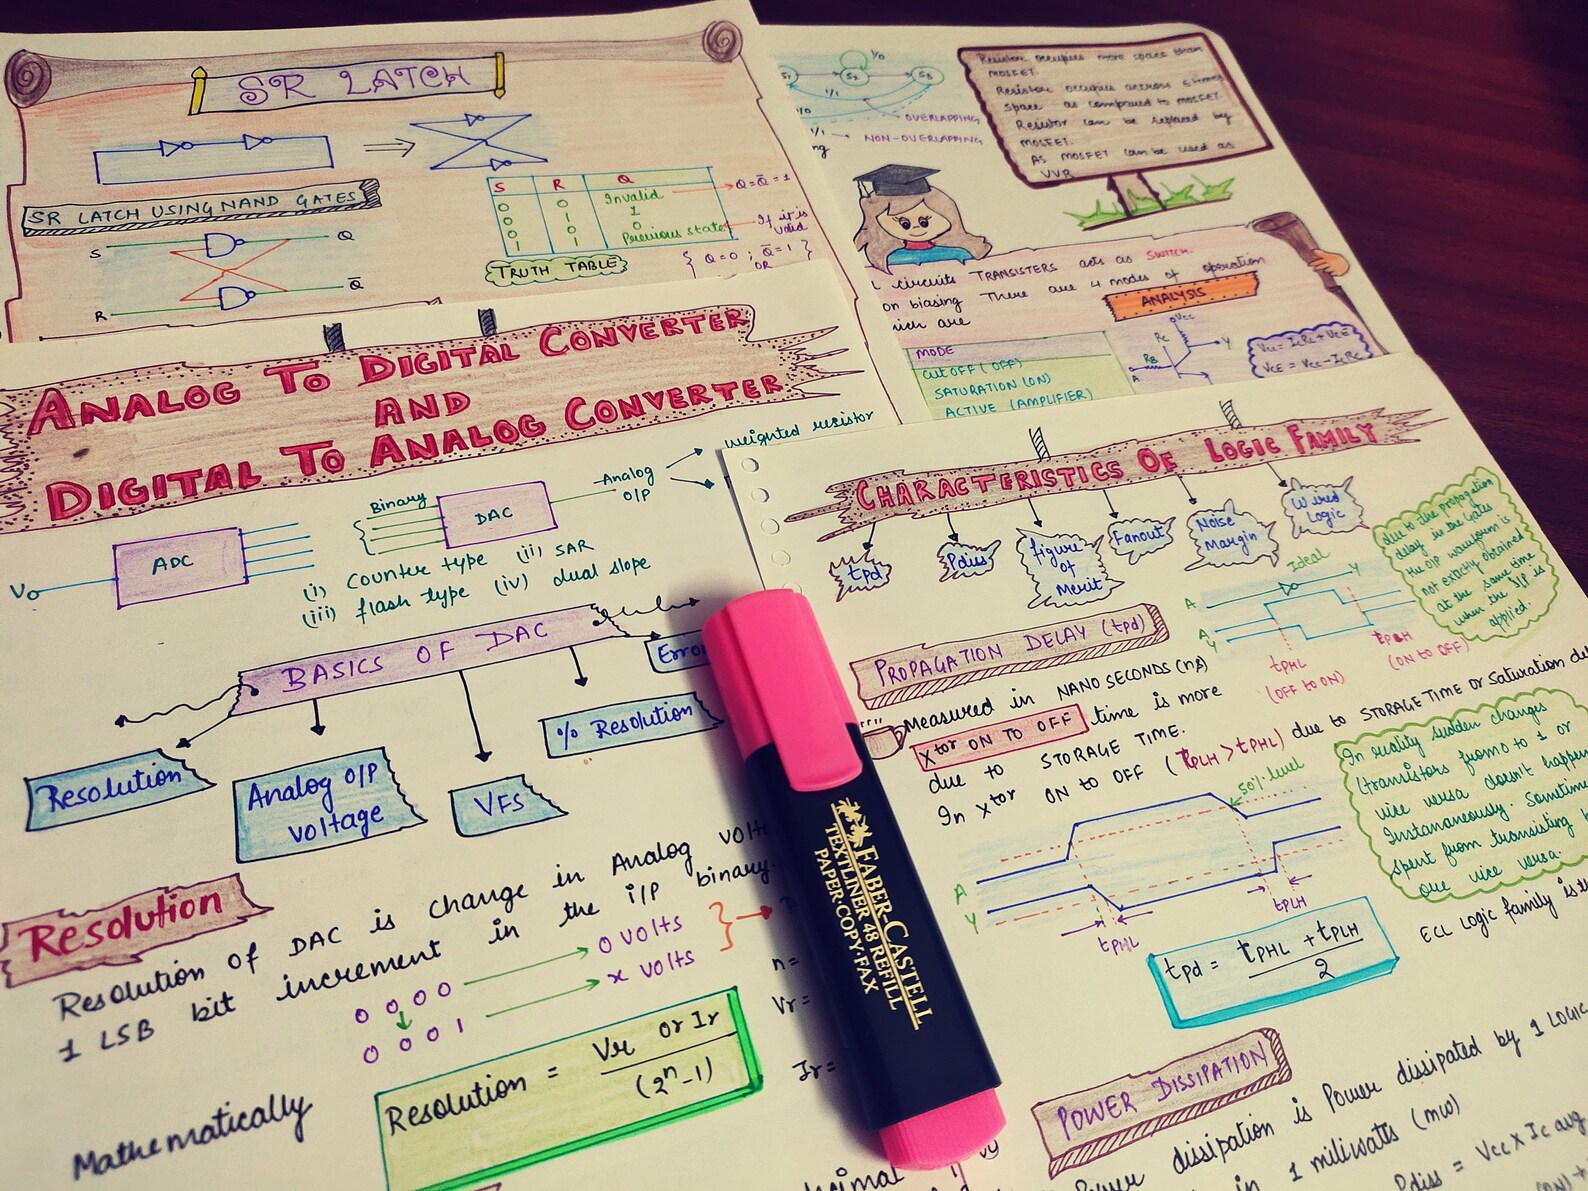 SR LATCH
SR LATCH USING NAND GATES
S
Q
Q̅
R
S R Q
0 0 Invalid
0 1 1
0 0
1 1 Previous state
Q=Q̅=1
If it is
valid
TRUTH TABLE
{ Q=0 ; Q̅=1
OR
S2
S3
1/0
1/1
OVERLAPPING
1/1 → NON-OVERLAPPING
Resistor occupies more space than
MOSFET.
Resistor occupies
space as compared to MOSFET.
Resistor can be replaced by
MOSFET.
As MOSFET can be used as
VVR
circuits TRANSISTERS acts as SWITCH.
on biasing There are 4 modes of operation
which are
ANALYSIS
MODE
CUTOFF (OFF)
SATURATION (ON)
ACTIVE (AMPLIFIER)
Vcc
Rc
RB
A
Y
Vcc = IcRc + VCE
VCE = Vcc - IcRc
ANALOG TO DIGITAL CONVERTER
AND
DIGITAL TO ANALOG CONVERTER
V
ADC
Binary
DAC
Analog
O/P
Weighted resistor
(i) Counter type (ii) SAR
(iii) flash type (iv) dual slope
BASICS OF DAC
Resolution
Analog O/P
voltage
VFS
% Resolution
Erro
Resolution
Resolution of DAC is change in Analog volt
1 LSB bit increment in the i/P binary.
0 0 0 0 → 0 volts
0 0 0 1 → x volts
Mathematically
Resolution = Vr or Ir / (2ⁿ-1)
n=
Vr=
Ir=
FABER-CASTELL
TEXTLINER 48 REFILL
PAPER·COPY·FAX
CHARACTERISTICS OF LOGIC FAMILY
tpd
Pdiss
figure
of
Merit
Fanout
Noise
Margin
Wired
Logic
due to the propagation
delay in the Gates
the O/P waveform is
not exactly obtained
at the same time
when the I/P is
applied.
Ideal
A
Y
A
Y
tPHL
(OFF TO ON)
tPLH
(ON TO OFF)
PROPAGATION DELAY (tpd)
Measured in NANOSECONDS (ns)
Xtor ON TO OFF time is more
due to STORAGE TIME.
In Xtor ON TO OFF (tPLH > tPHL) due to STORAGE TIME or Saturation del
50% level
A
Y
tPHL
tPLH
In reality sudden changes
(transistors from 0 to 1 or
vice versa doesn't happen
Instananeously. Sometime
spent from transisting
one vice versa.
tpd = tPHL + tPLH / 2
ECL Logic family is
POWER DISSIPATION
Power dissipation is Power dissipated by 1 LOGIC
in 1 miliwatts (mw)
Pdiss = Vcc X Ic avg